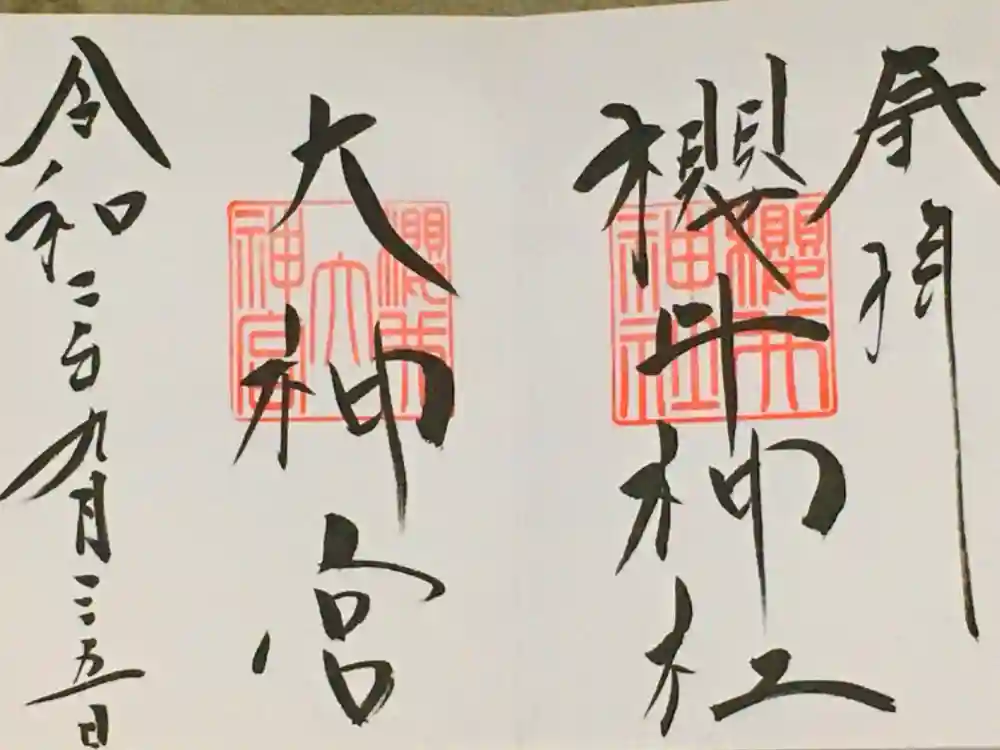 奉拝
櫻井神社
櫻井神社
大神宮
櫻井大神宮
令和二年九月二五日